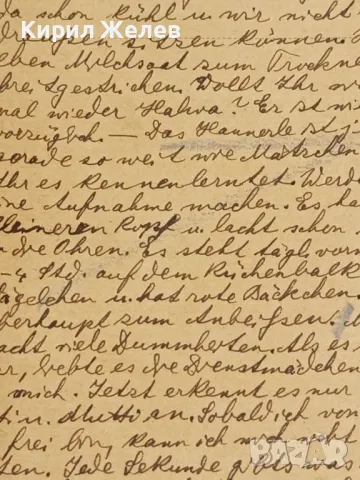 da schon kühl u wir nicht
Кирил Желев
draußen sitzen können.
elben Milchsaat zum Trockne
breitgestrichen. Wollt Ihr
mal wieder Halwa? Er ist
vorzüglich. — Das Hannerle ist j
gerade so weit wie Märtchen
Ihr es kennenlerntet. Werd
ine Aufnahme machen. Es ha
kleineren Kopf u. lacht schon
die Ohren. Es steht tägl. vorm
- 4 Std. auf dem Küchenbalk
ägelchen u. hat rote Bäckchen
berhaupt zum Anbeißen.
acht viele Dummheiten. Als es
er, liebte es die Dienstmädchen
mich. Jetzt erkennt es nur
ti u. Mutti an. Sobald ich von
frei bin, kann ich mich nicht
ten. Jede Sekunde gibts was
bazar.bg